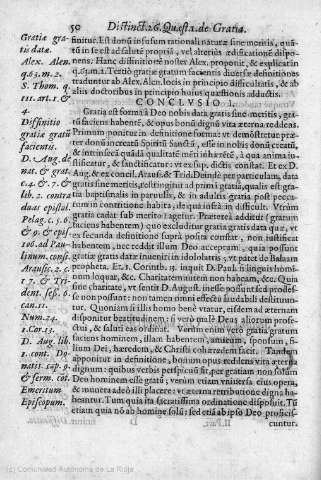 50 Distinct. 26. Quæst. 1. de Gratia.
Gratiæ gra-
tis datæ.
Alex. Alen.
q. 63. m. 2.
S. Thom. q.
111. art. 1. &
4
Diffinitio
gratiæ gratū
facientis.
D. Aug. de
nat. & grat.
c. 4. & 7. &
lib. 2. contra
duas epist.
Pelag. c. 5. 6.
& 9. & epist.
106. ad Pau-
linum. cons.
Arausic. 2. c.
17. & Tri-
dent. sess. 6.
can. 11.
Num. 24.
1. Cor. 13.
D. Aug. lib.
1. cont. Do-
natis. cap. 9.
& serm. cōt.
Emeritum
Episcopum.
finitur. Est donū infusum rationali naturæ sine meritis, quā-
tū in se est ad salutē propriā, vel alterius ædificationē dispo-
nens. Hanc diffinitionē noster Alex. proponit, & explicat in
q. 63. m. 2. Tertio gratiæ gratum facientis diversæ definitiones
traduntur ab Alex. locis in principio difficultatis, & ab
aliis doctoribus in principio huius quæstionis adductis.
CONCLUSIO I.
Gratia est forma à Deo nobis data gratis sine meritis, gra-
tum faciens habentē, & opus bonū dignū vita æterna reddens.
Primum ponitur in definitione forma: ut demōstretur præ-
ter donū increatū Spiritū Sanctū, esse in nobis donū creatū,
& intrinsecā quādā qualitatē mēti inhærētē, à qua anima iu-
stificatur, & sanctificatur: ut ex sup. dictis constat. Et ex D.
Aug. & ex concil. Araus. & Trid. Deinde per particulam, data
gratis sine meritis, distinguitur ad primā gratiā, qualis est gra-
tia baptismalis in parvulis, & in adultis gratia post pecca-
tum in contritione habita, deinde infusa in difficult. Verùm
gratia cadat sub merito augetur. Præterea additur (gratum
faciens habentem) quo excluditur gratia gratis data quæ, ut
ex secunda definitione supra posita constat, non iustificat
habentem, nec reddit illum Deo acceptum, quia possunt
gratiæ gratis datæ inveniri in idololatris, ut patet de Balaam
propheta. Et 1. Corinth. 13. inquit D. Paul. si linguis homini
loquar, &c. Charitatem autem non habeam, &c. Quia
sine charitate, ut sentit D. August. inesse possunt sed prodes-
se non possunt: non tamen omni effectu saudabili destituun-
tur. Quoniam si illis homo benè utatur, eisdem ad æternam
disponitur beatitudinem; si verò malè Deus aliorum prose-
ctui, & saluti eas ordinat. Verùm enim verò gratia gratum
faciens hominem, illam habentem, amicum, sponsum, fi-
lium Dei, hæredem, & Christi cohæredem facit. Tandem
apponitur in definitione, bonum opus reddens vita æterna
dignum: quibus verbis perspicuè fit, per gratiam non solùm
Deo hominem esse gratū, verùm etiam universa eius opera,
& munera adeò illi placere: ut vitæ æternæ retributione digna
habeantur. Tum quia ita sacratissima ordinatione disposuit. Tū
etiam quia nō ab homine solū: sed etiā ab ipso Deo profici-
D II. Par. cuntur.
(c) Comunidad Autónoma de La Rioja